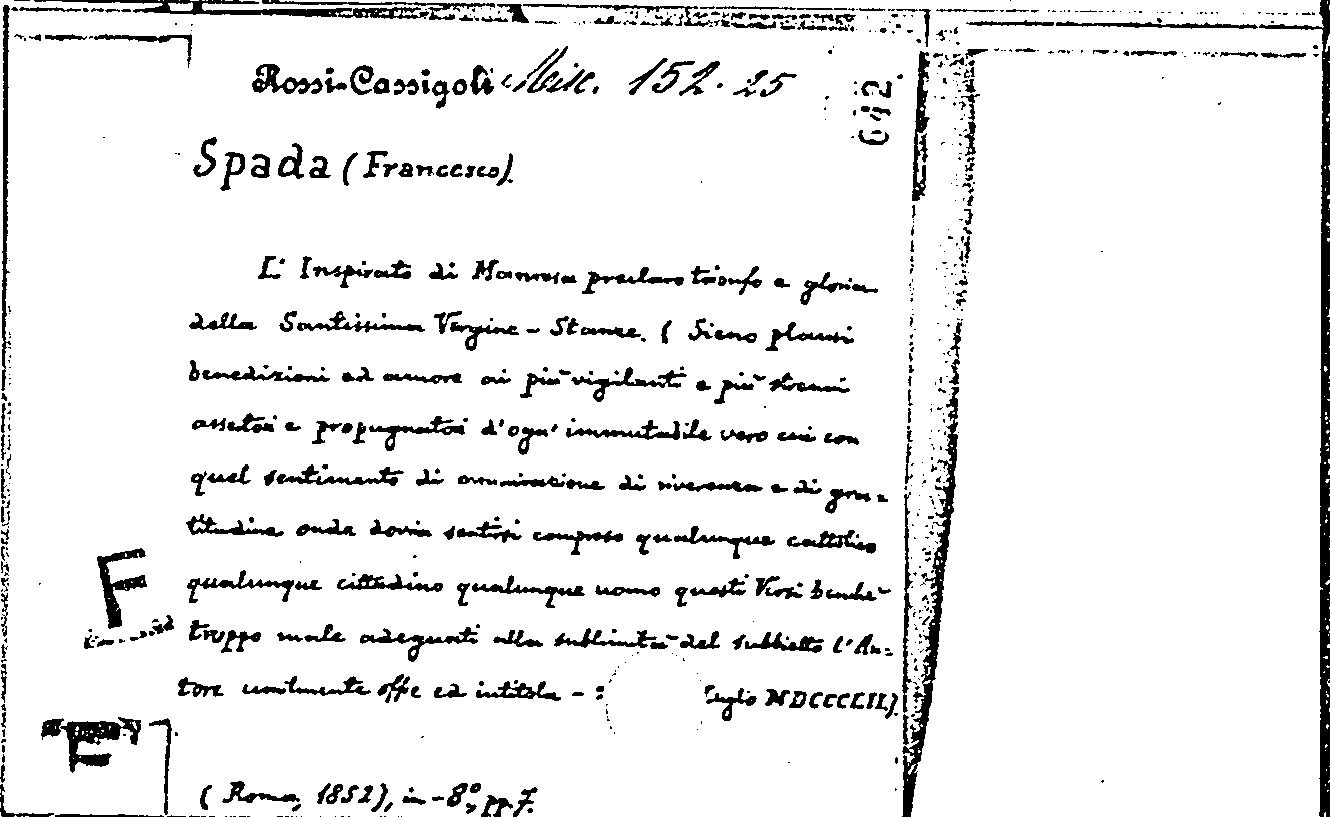 Rossi-Cassigoli Misc. 152.25
642
Spada (Francesco).
L' Inspirato di Manresa preclaro trionfo e gloria
della Santissima Vergine - Stanze. ( Sieno plausi
benedizioni ed amore ai più vigilanti e più strenui
assertori e propugnatori d'ogn' immutabile vero cui con
quel sentimento di ammirazione di riverenza e di gra-
titudine onde dovria sentirsi compreso qualunque cattolico
qualunque cittadino qualunque uomo questi Versi benchè
troppo male adeguati alla sublimità del subbietto l'Au-
tore umilmente offre ed intitola - Luglio MDCCCLII).
F
F
( Roma, 1852), in-8°, pp. 7.